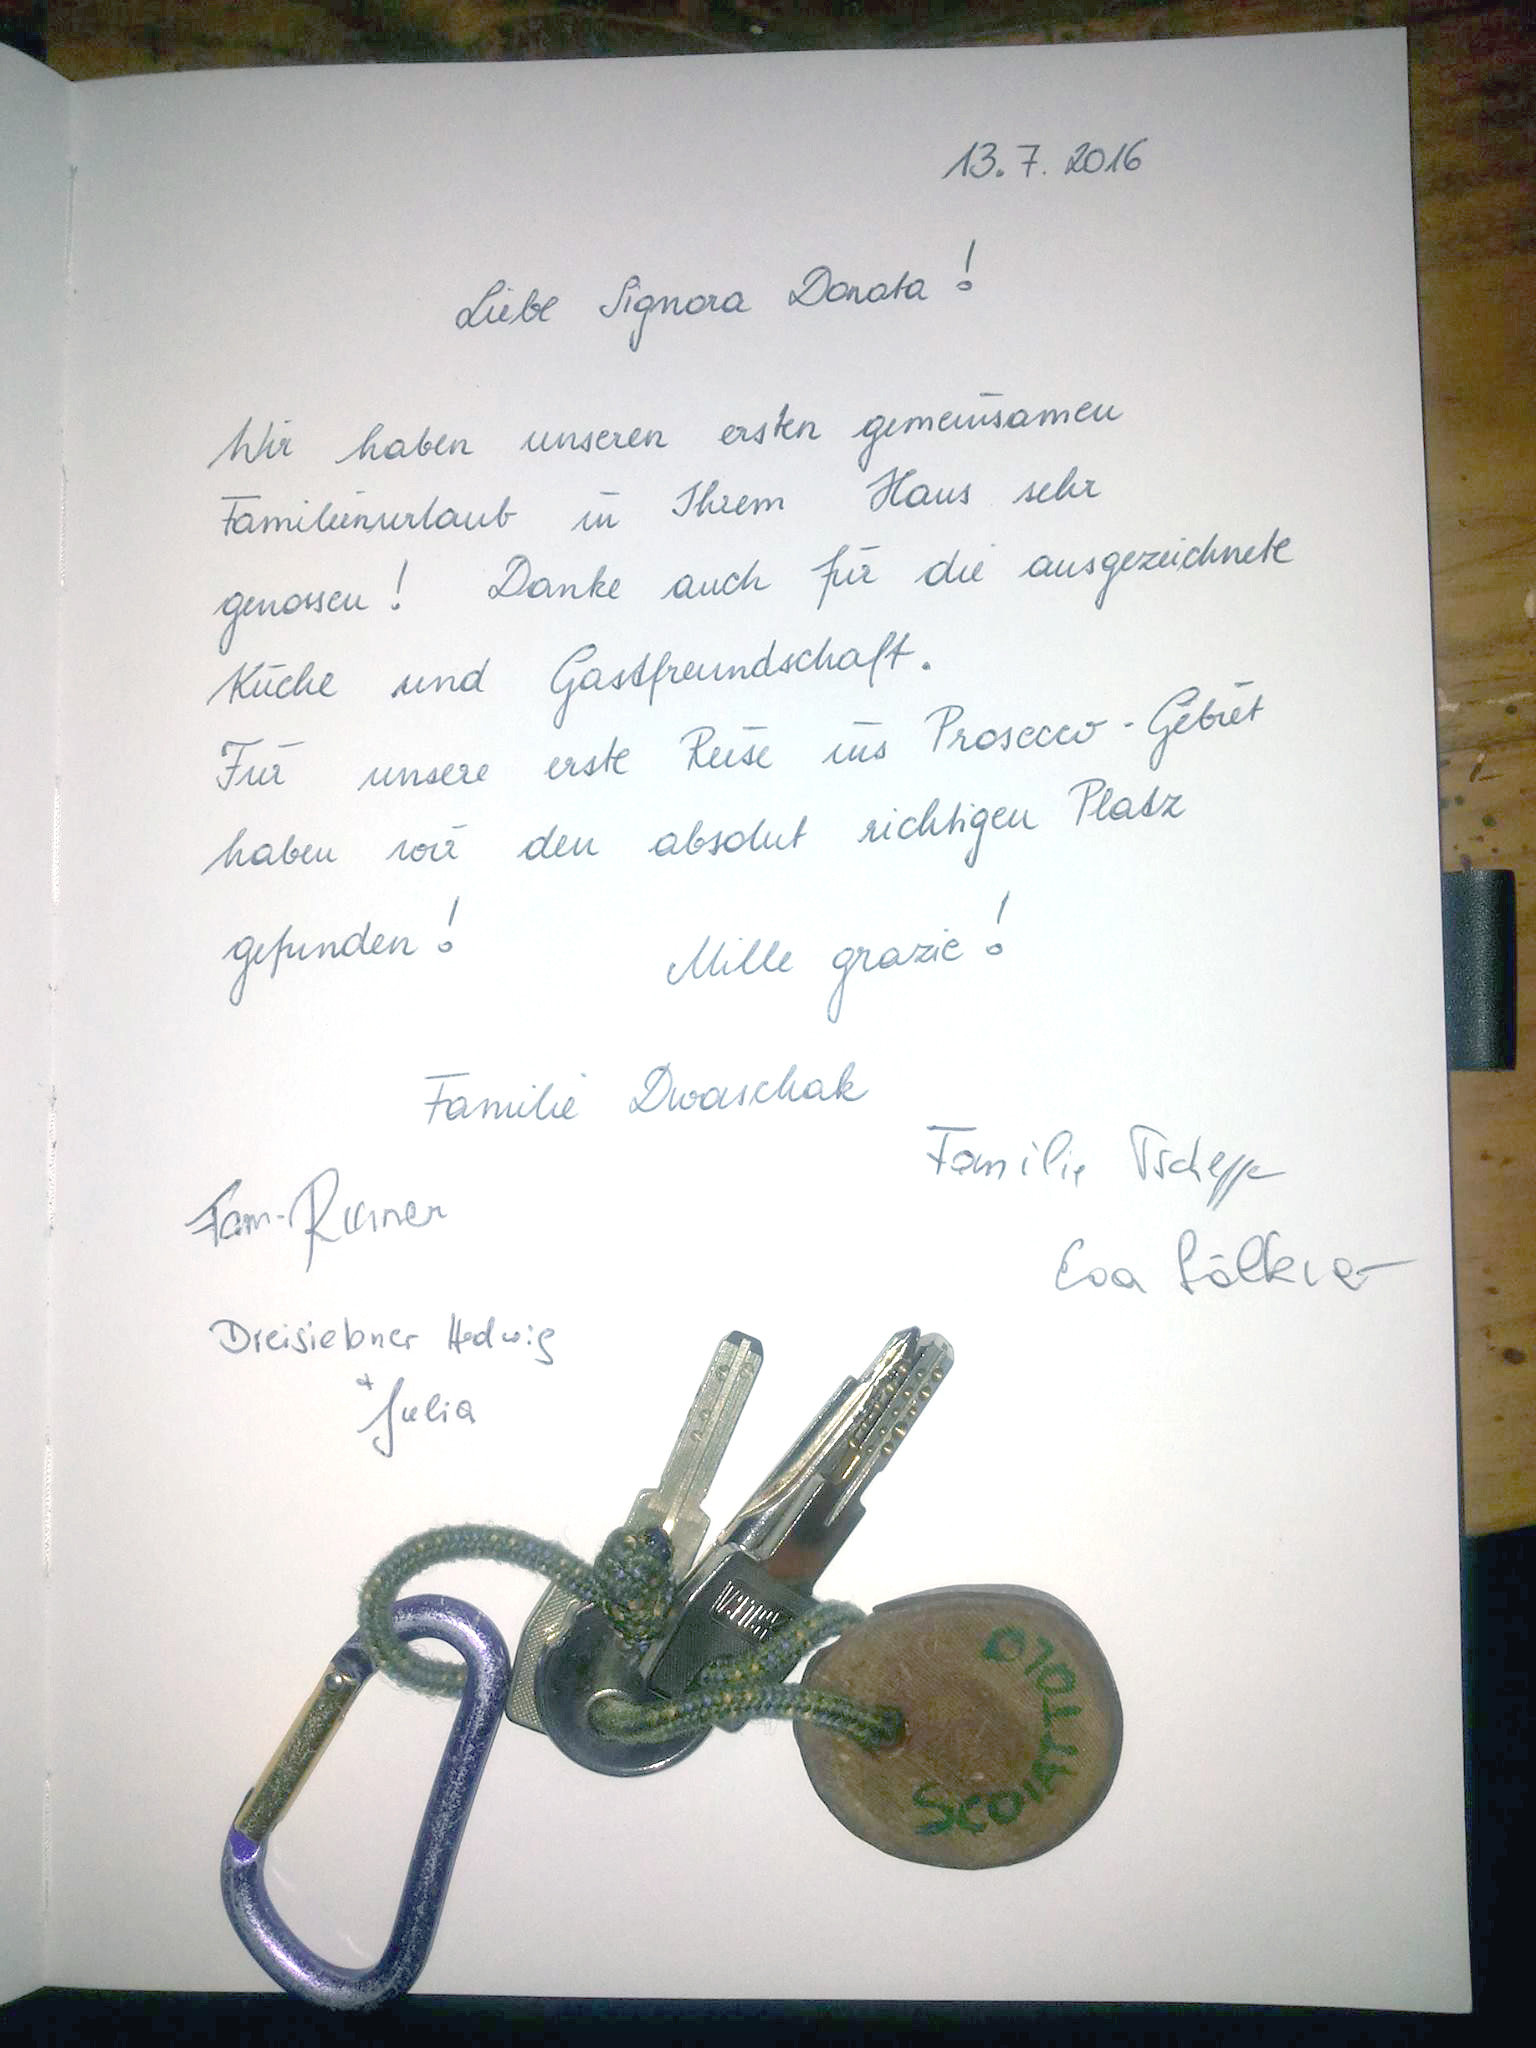 13.7.2016
Liebe Signora Donata!
Wir haben unseren ersten gemeinsamen
Familienurlaub in Ihrem Haus sehr
genossen! Danke auch für die ausgezeichnete
Küche und Gastfreundschaft.
Für unsere erste Reise ins Prosecco-Gebiet
haben wir den absolut richtigen Platz
gefunden! Mille grazie!
Familie Dwaschak
Familie
Fam.
Eva
Dreisiebner Hedwig
+ Julia
SCOIATTOLO